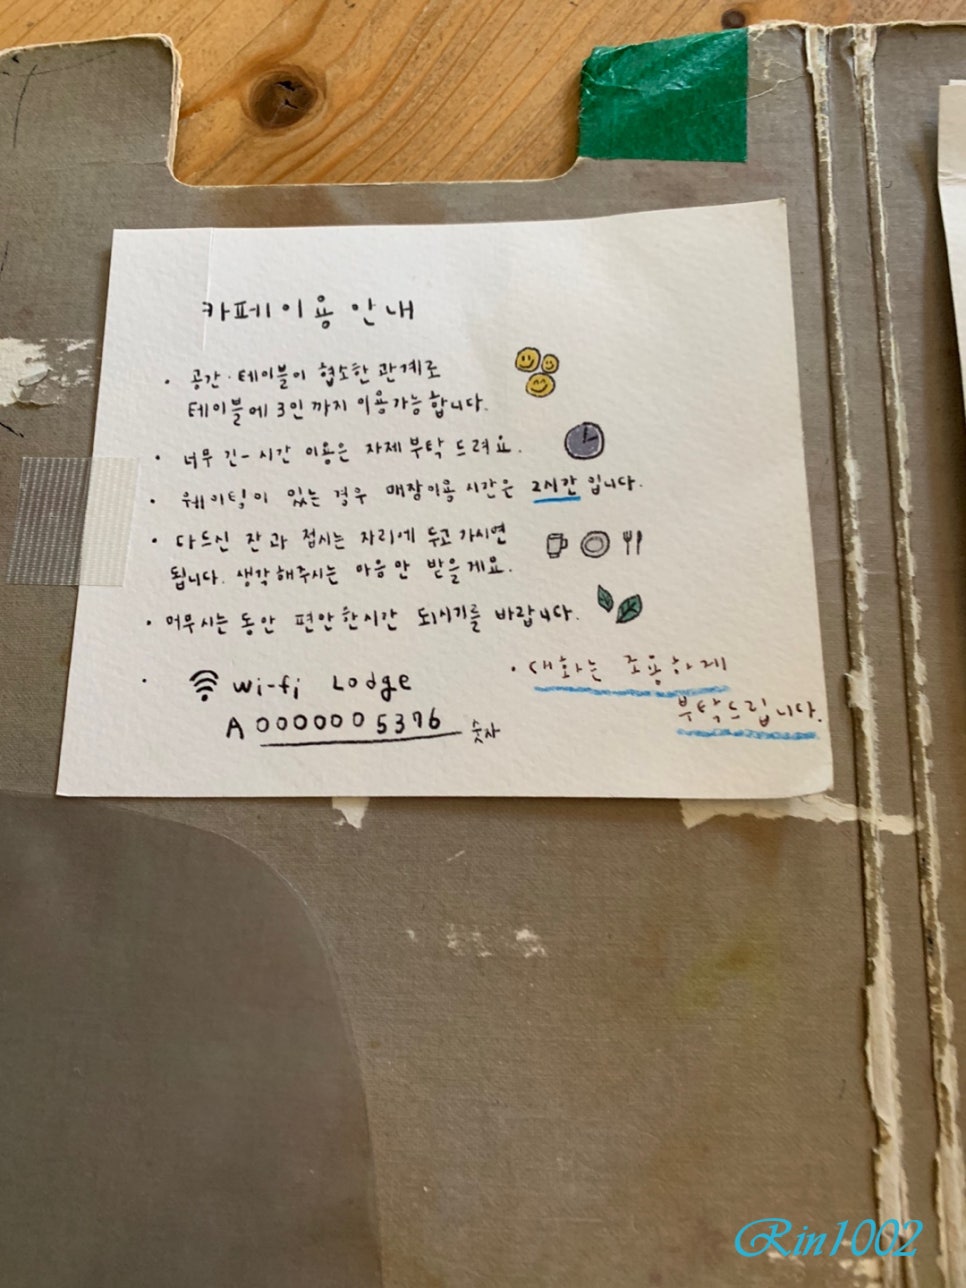 카페이용 안내
· 공간·테이블이 협소한 관계로
테이블에 3인까지 이용가능합니다.
· 너무 긴- 시간 이용은 자제 부탁 드려요.
· 웨이팅이 있는 경우 매장이용 시간은 2시간 입니다.
· 다드신 잔과 접시는 자리에 두고 가시면
됩니다. 생각해주시는 마음만 받을게요.
· 머무시는 동안 편안한시간 되시기를 바랍니다.
· wi-fi Lodge
A 0000005376 숫자
· 대화는 조용하게
부탁드립니다.
Rin1002